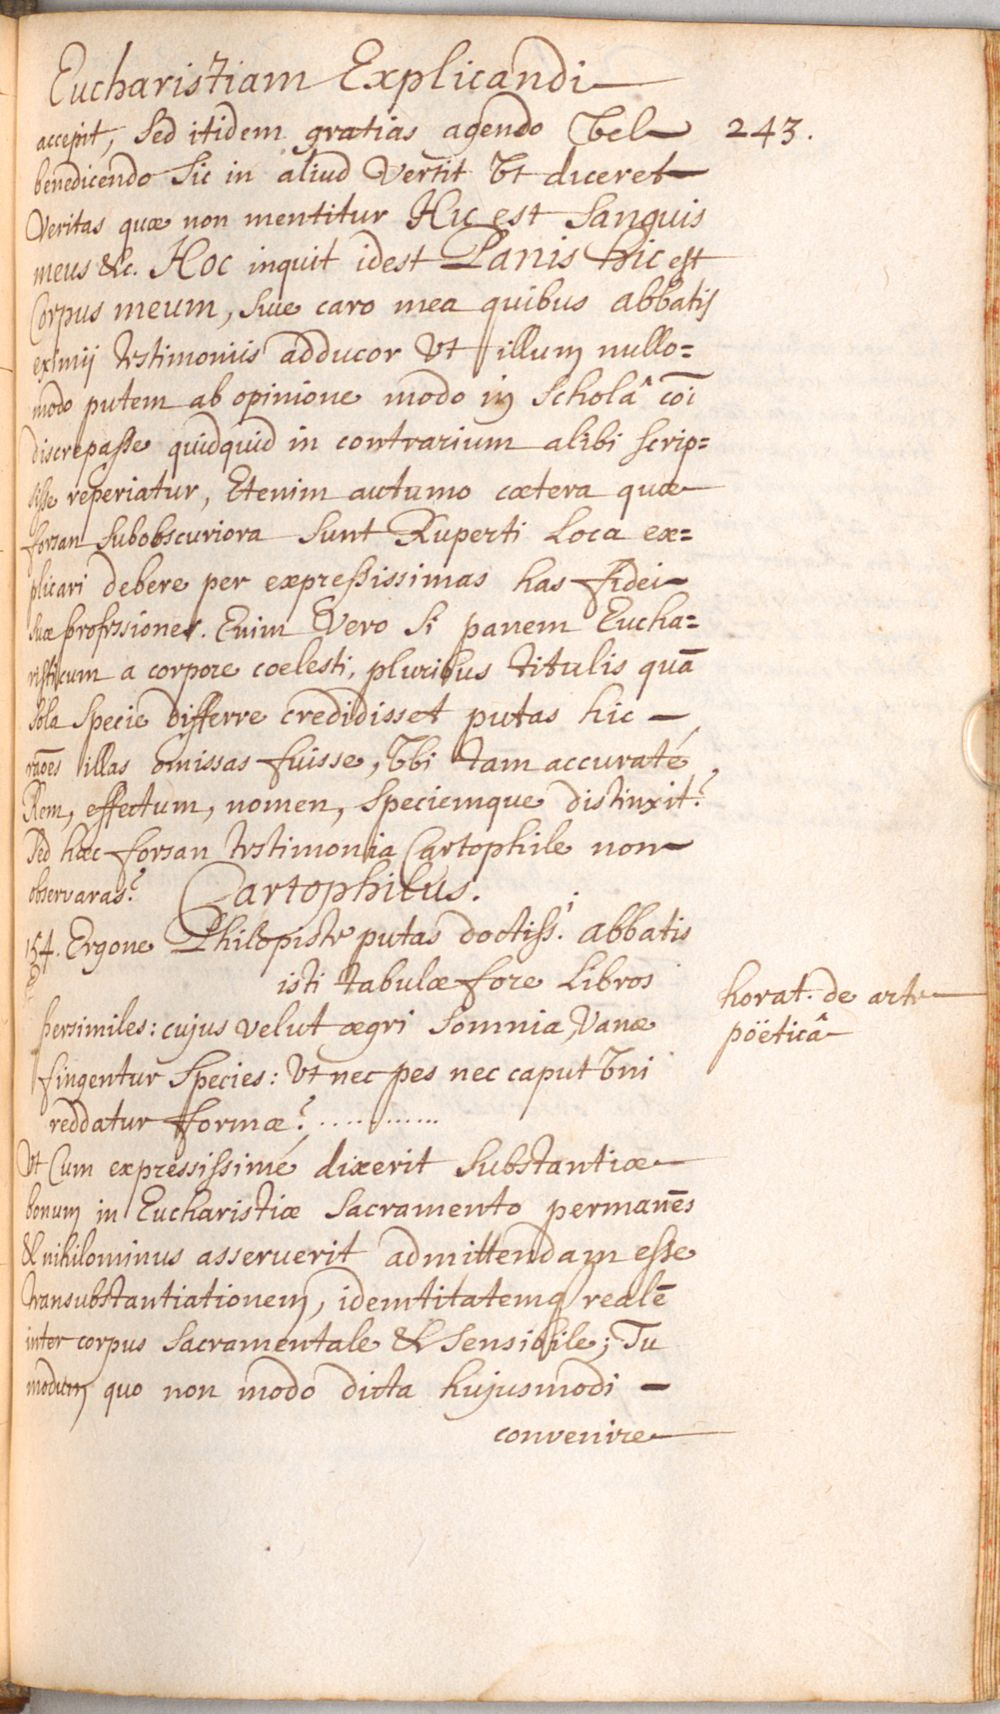 Eucharistiam Explicandi
243.
accepit, sed itidem gratias agendo vel
benedicendo sic in aliud vertit vt diceret
veritas quæ non mentitur Hic est sanguis
meus &c. Hoc inquit idest Panis hic est
Corpus meum, siue caro mea quibus abbatis
eximij testimoniis adducor vt illum nullo=
modo putem ab opinione modo in scholâ cōi
discrepasse quidquid in contrarium alibi scrip=
sisse reperiatur, Etenim autumo cætera quæ
forsan subobscuriora sunt Ruperti Loca ex=
plicari debere per expressissimas has fidei
suæ professiones. Enim vero si panem Eucha=
risticum a corpore coelesti, pluribus titulis quā
sola specie differre credidisset putas hic
rāoēs illas omissas fuisse, vbi tam accuraté
Rem, effectum, nomen, speciemque distinxit?
Sed hæc forsan testimonia Cartophile non
observaras?
Cartophilus.
154. Ergone Philopiste putas doctiss.i abbatis
isti tabulæ fore Libros
persimiles: cujus velut ægri somnia, vanæ
fingentur species: vt nec pes nec caput vni
reddatur formæ? ............
horat. de arte
pöëticâ
Vt Cum expressissimé dixerit substantiæ
bonum in Eucharistiæ sacramento permanēs
& nihilominus asseruerit admittendam esse
transubstantiationem, idemtitatemq realē
inter corpus sacramentale & sensibile; Tu
modum quo non modo dicta hujusmodi
convenire